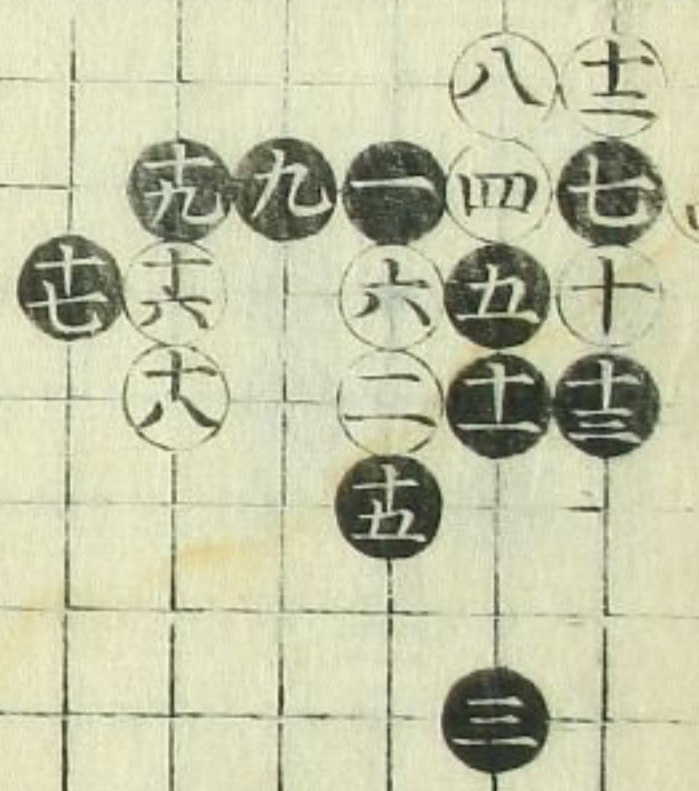 八 十二
十九 九 一 四 七
十七 十六 六 五 十
十八 二 十一 十三
十五
三